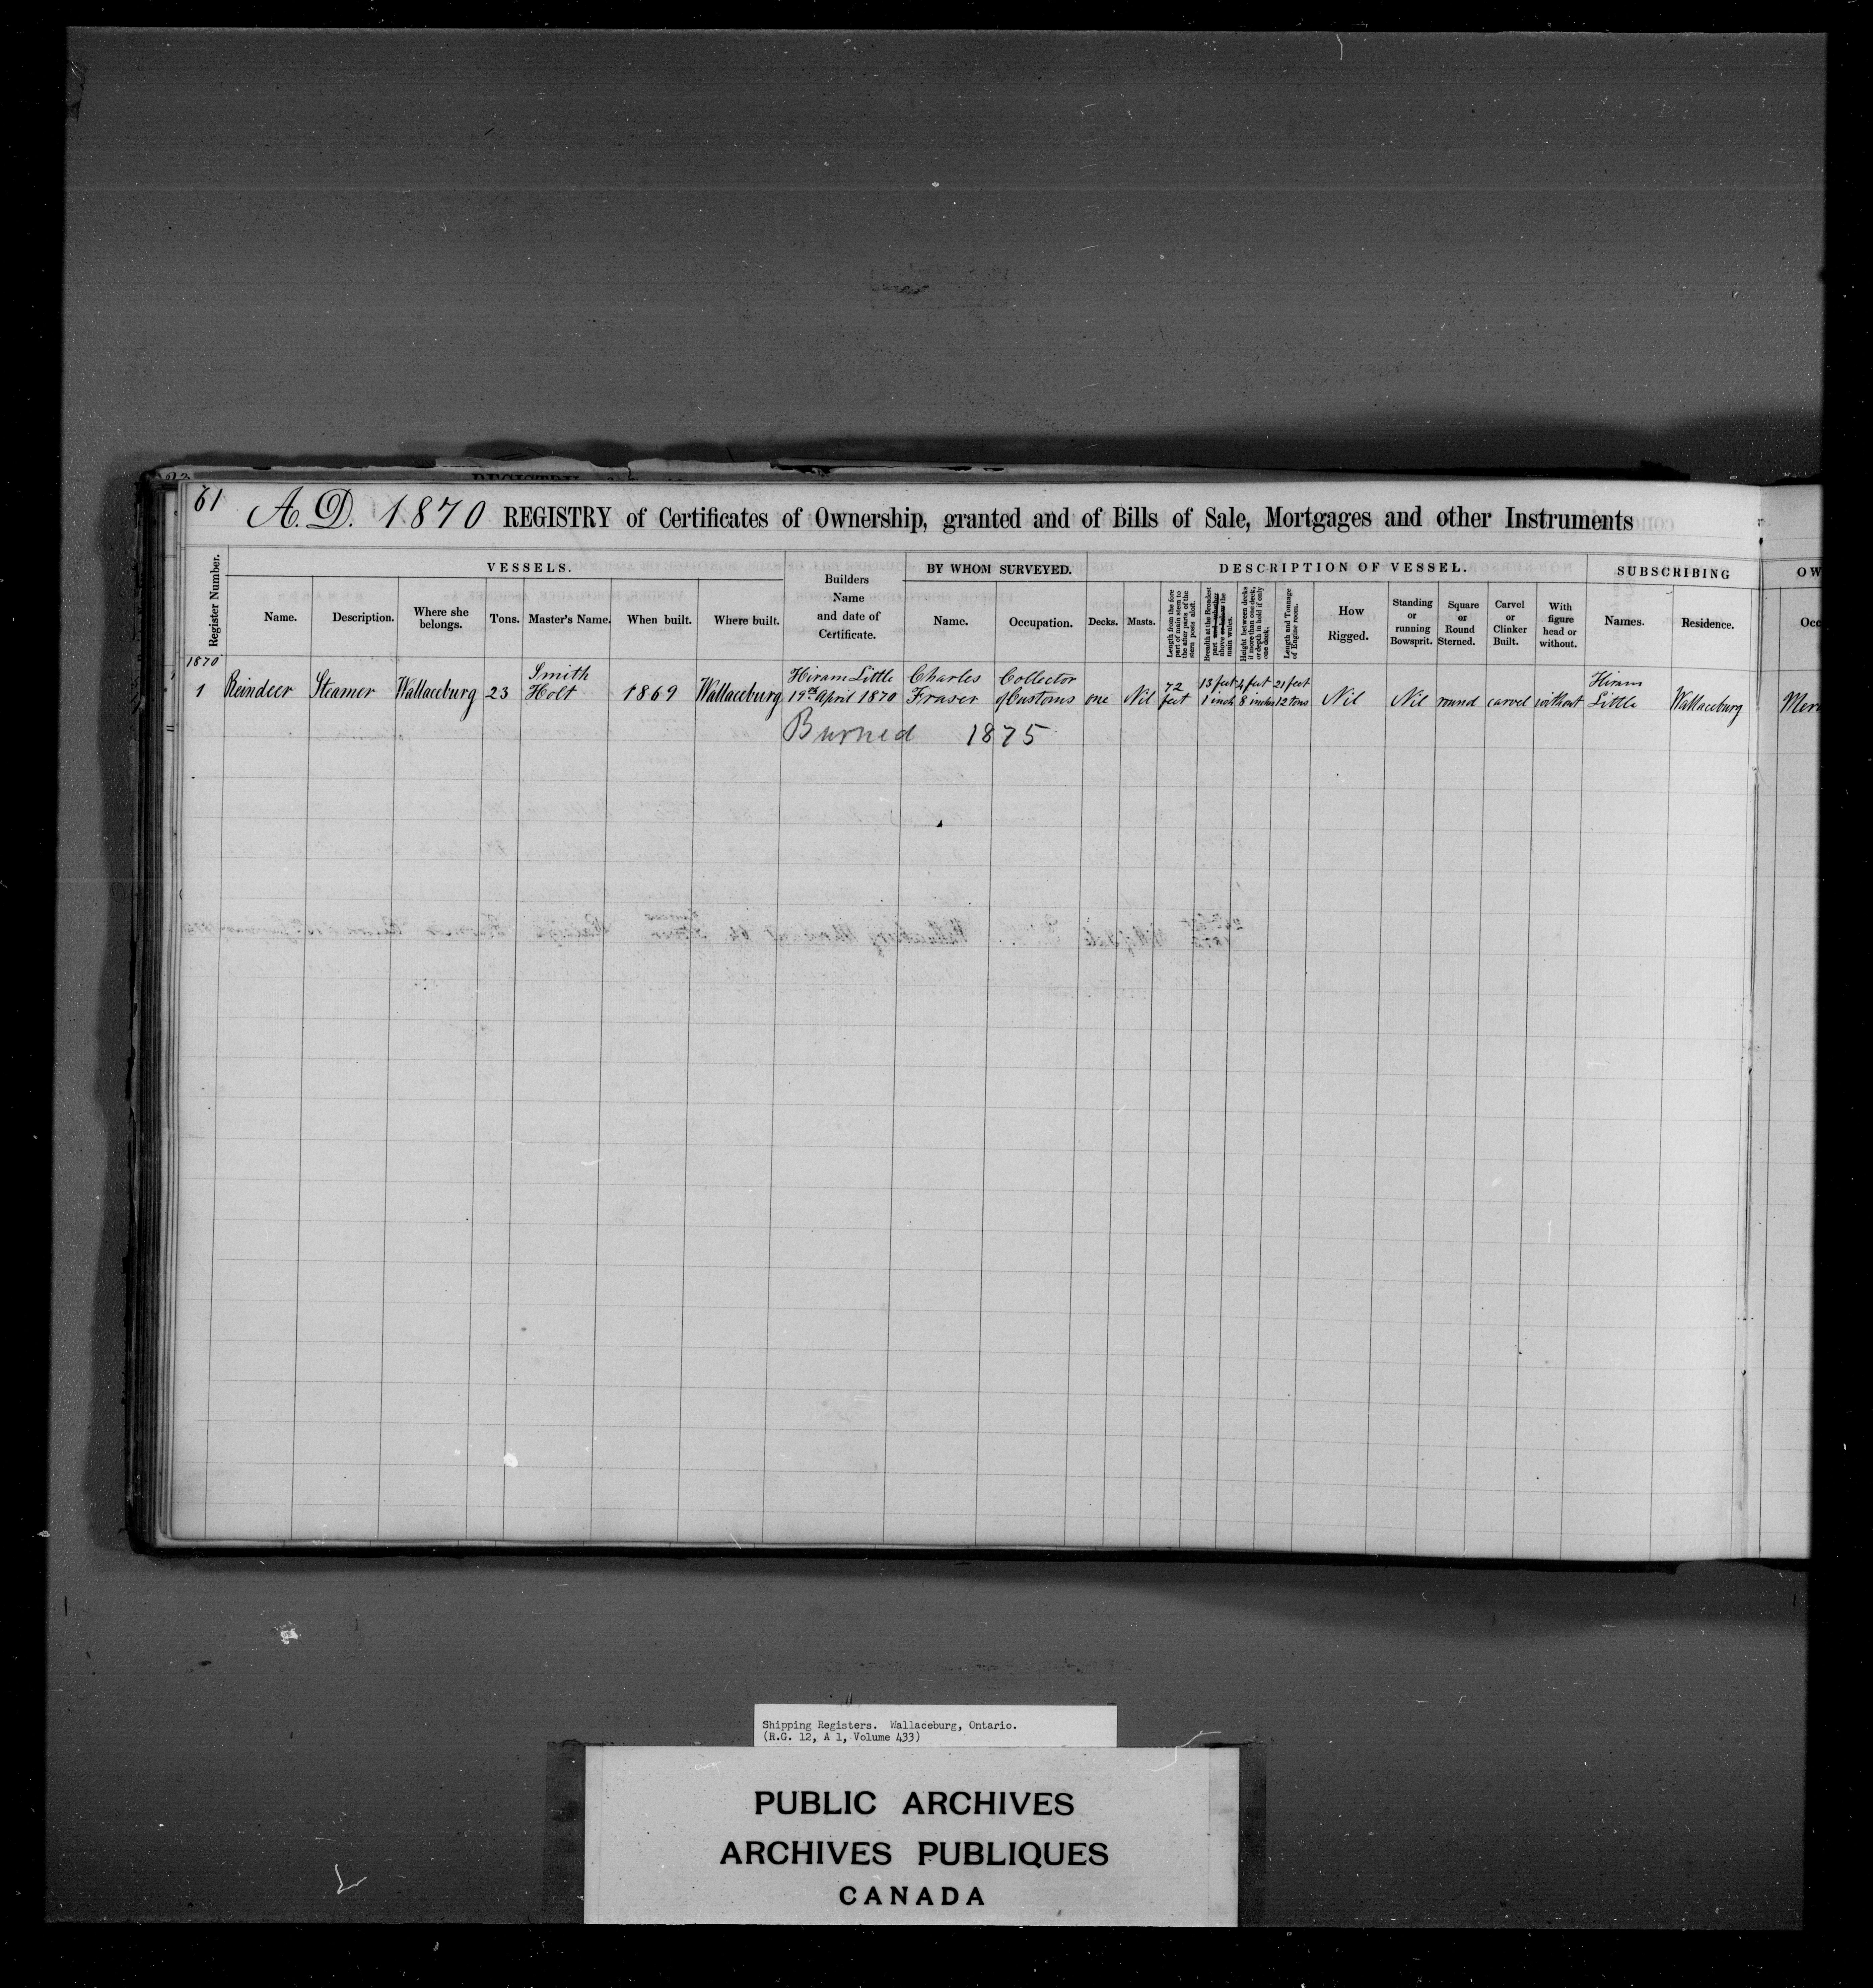 61
A.D. 1870 REGISTRY of Certificates of Ownership, granted and of Bills of Sale, Mortgages and other Instruments
Register Number.
VESSELS.
Name.
Description.
Where she belongs.
Tons.
Master's Name.
When built.
Where built.
Builders Name and date of Certificate.
BY WHOM SURVEYED.
Name.
Occupation.
DESCRIPTION OF VESSEL.
Decks.
Masts.
Length from the fore part of main stem to the after parts of the stern posts aloft.
Breadth at the Broadest part and whether above or below the main wales.
Height between decks if more than one deck, or depth in hold if only one deck.
Length and Tonnage of Engine room.
How Rigged.
Standing or running Bowsprit.
Square or Round Sterned.
Carvel or Clinker Built.
With figure head or without.
SUBSCRIBING
Names.
Residence.
OW
Occ
1870
1 Reindeer Steamer Wallaceburg 23 Smith Holt 1869 Wallaceburg Hiram Little 19th April 1870 Charles Fraser Collector of Customs one Nil 72 feet 13 feet 1 inch 4 feet 8 inches 21 feet 12 tons Nil Nil round carvel without Hiram Little Wallaceburg Mer
Burned 1875
Shipping Registers. Wallaceburg, Ontario.
(R.G. 12, A 1, Volume 433)
PUBLIC ARCHIVES
ARCHIVES PUBLIQUES
CANADA